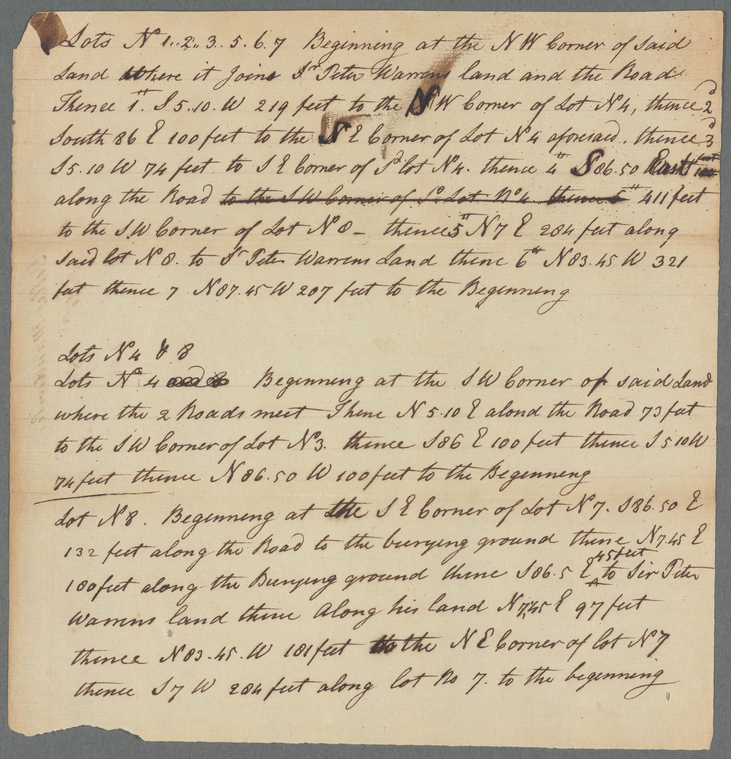 Lots N 1.. 2.. 3. 5. 6. 7 Beginning at the N W Corner of said
Land Where it Joins Sr Peter Warrens land and the Road
Thence 1st. S 5.10. W 219 feet to the N W Corner of Lot N 4, thence 2d
South 86 E 100 feet to the N E Corner of Lot N 4 aforesaid. thence 3d
S 5.10 W 74 feet to S E Corner of Sd lot N 4. thence 4th S 86.50 East
along the Road to the S W Corner of Sd Lot No 4 thence 5th 411 feet
to the S.W Corner of Lot N 8 – thence 5th N 7 E 284 feet along
said lot N 8. to Sr Peter Warrens Land thene 6th N 83.45 W 321
feet thence 7 N 87.45 W 207 feet to the Beginneng
Lots N 4 & 8
Lots No 4 and 8 Beginneng at the S W Corner of said Land
where the 2 Roads meet Thene N 5.10 E alond the Road 73 feet
to the S W Corner of Lot N 3. thence S 86 E 100 feet thence S 5 10 W
74 feet thence N 86.50 W 100 feet to the Beginneng
Lot N 8. Beginneng at the S E Corner of Lot N 7. S 86.50 E
132 feet along the Road to the bureyeng ground thene N 7.45 E
180 feet along the Bureyeng ground thene S 86.5 E 45 feet to Sir Peter
Warrens land thene Along his land N 7.45 E 97 feet
thence N 83.45. W 181 feet to the N E Corner of lot N 7
thence S 7 W 284 feet along lot No 7. to the beginneng